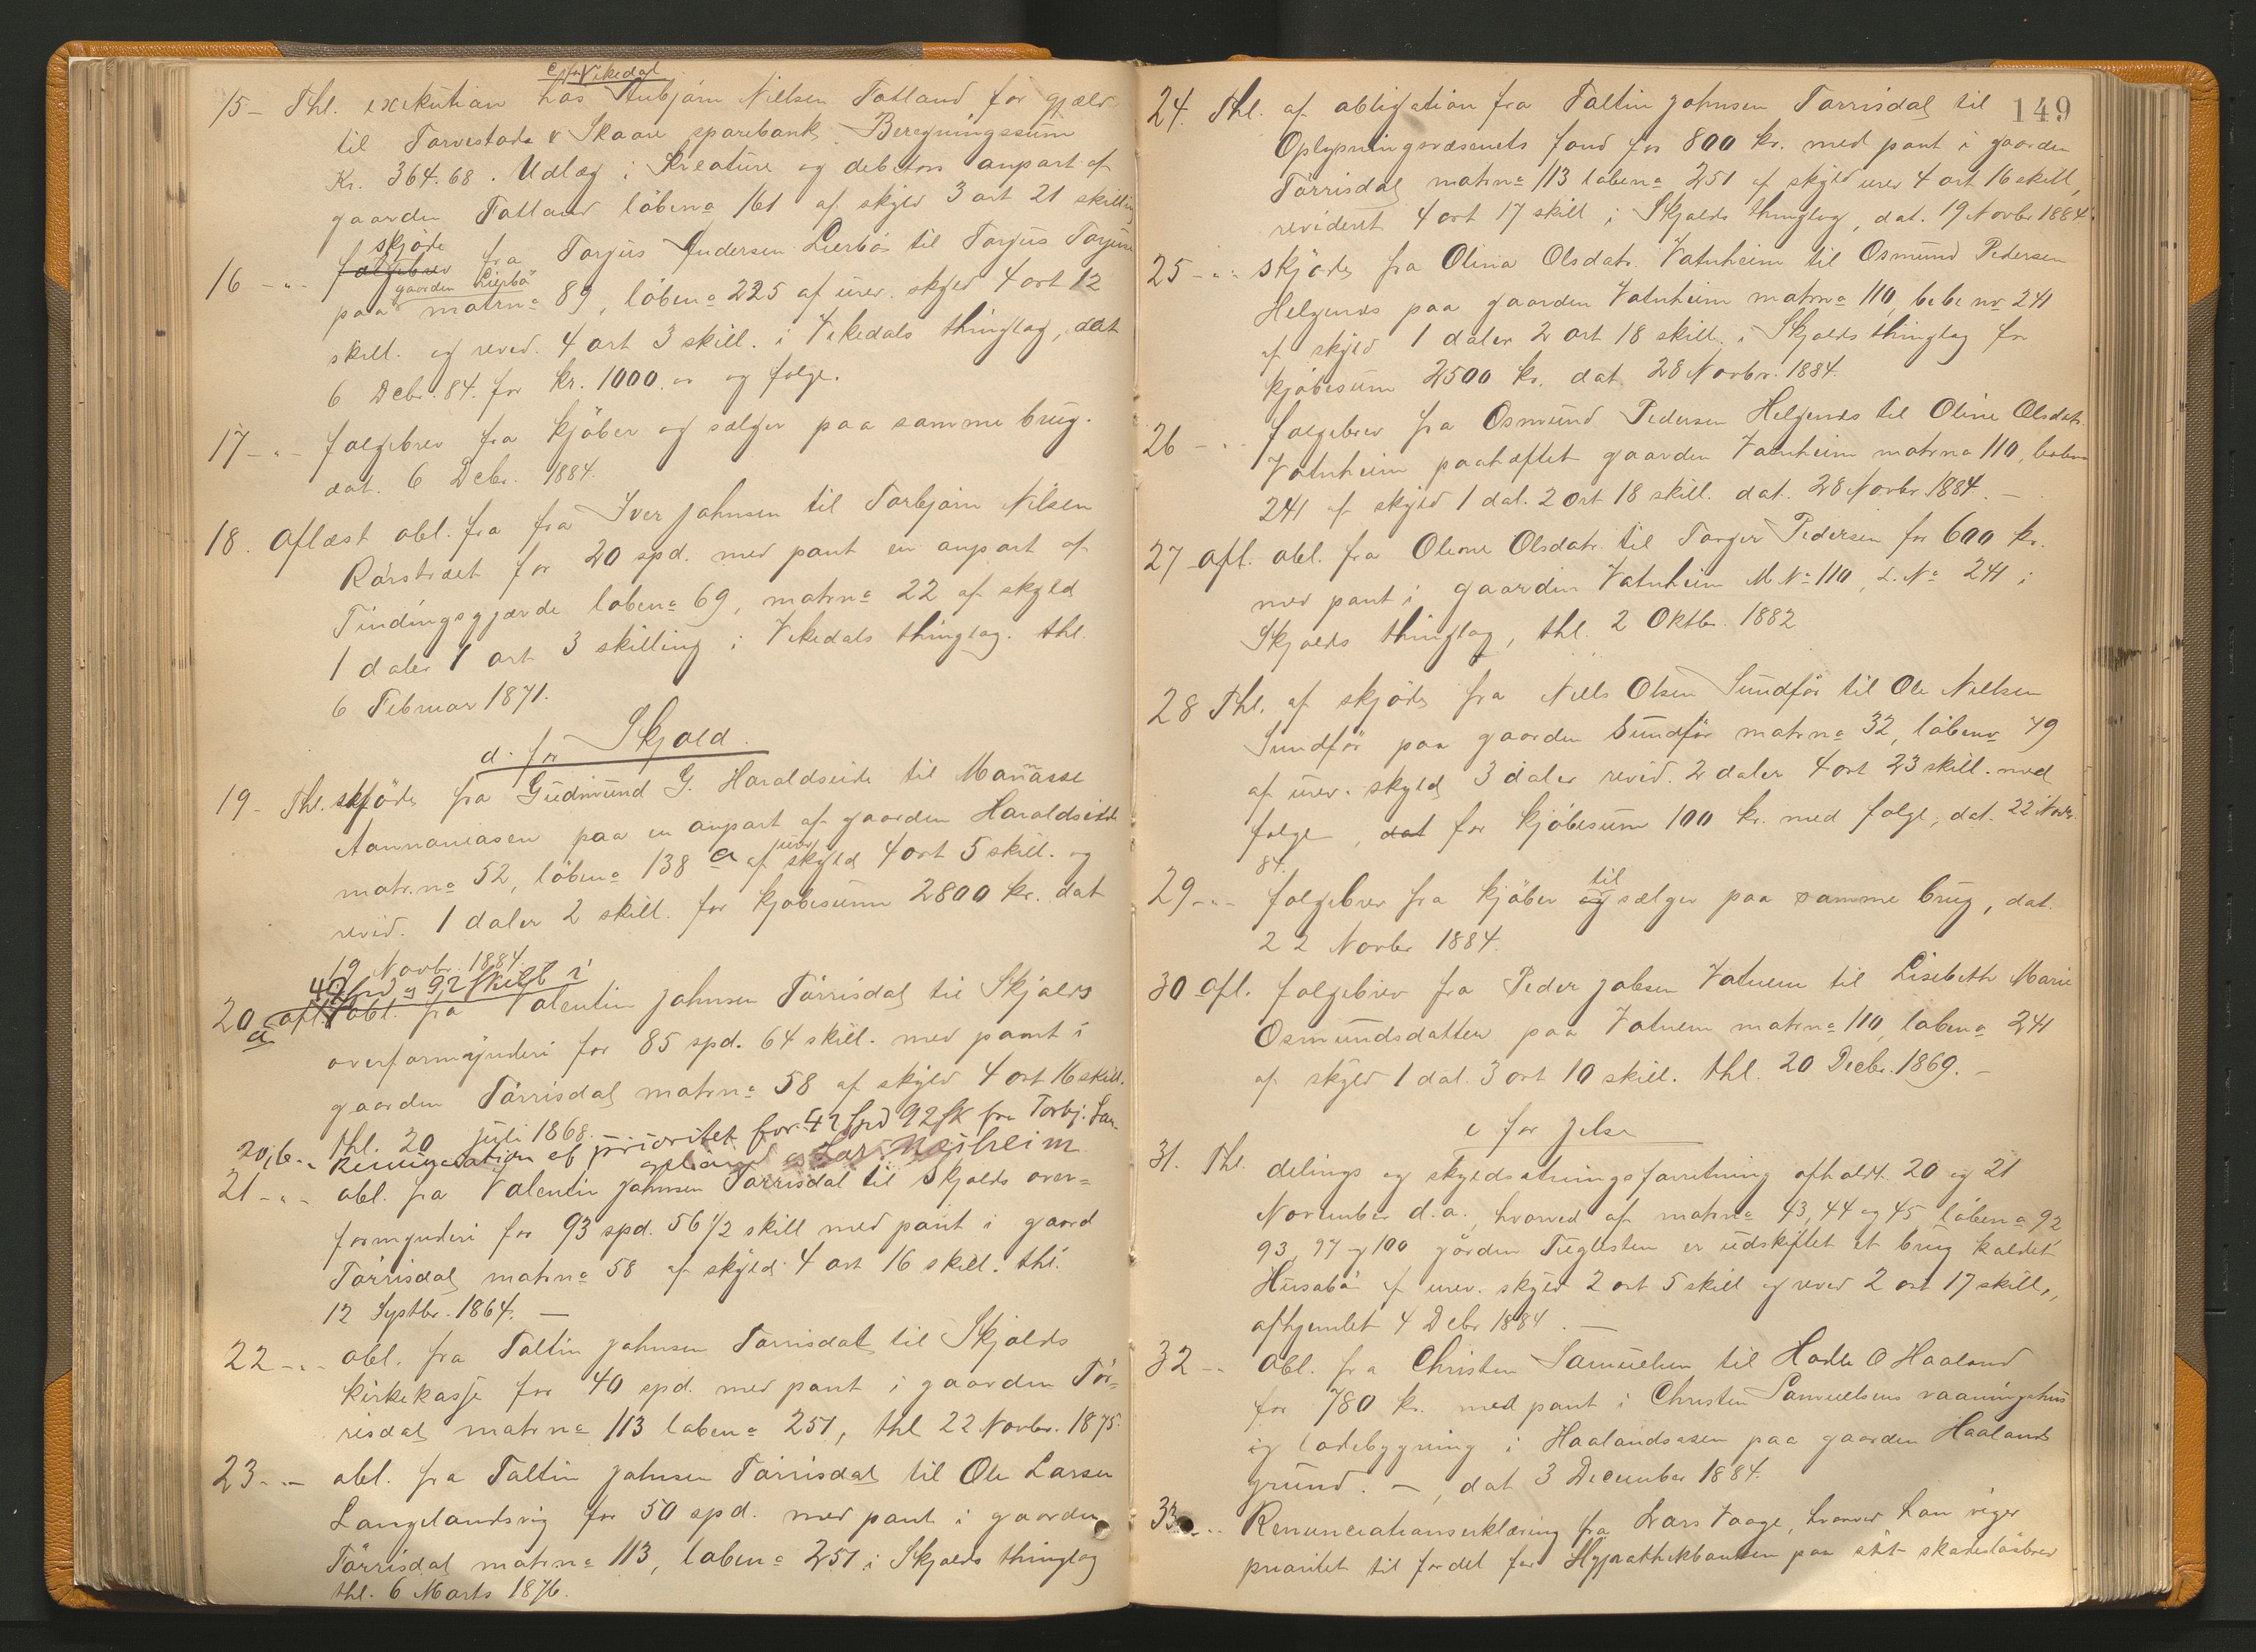 c, for Vikedal
15 - Thl. exekution hos Aubjørn Nielsen Tatland, for gjæld
til Torvestads & Skaare sparebank. Beregningssum
Kr. 364.68. Udlæg i Kreature og debitors anpart af
gaarden Tatland löbeno 161 af skyld 3 ort 21 skilling
skjöde
16 - " - folgebrev fra Torgus Andersen Lierbö til Torgus Torgusen
gaarden Lierbö
paa matrno 89, löbeno 225 af urev. skyld 4 ort 12
skill. og revid. 4 ort 3 skill. i Vikedals thinglag, dat
6 Debr. 84. for kr. 1000. og folge.
17 - " - folgebrev fra kjöber og sælger paa samme brug.
dat. 6 Debr. 1884.
18. Aflæst obl. fra fra Iver Johnsen til Torbjørn Nilsen
Rörstræt for 20 spd. med pant en anpart af
Tindingsgjærde löbeno 69, matrno 22 af skyld
1 daler 1 ort 3 skilling i Vikedals thinglag. thl.
6 Februar 1871.
d. for Skjold.
19 - Thl. skjöde fra Gudmund G. Haraldseide til Mannasse
Aannaniasen paa en anpart af gaarden Haraldseide
matr.no 52, löbeno 138 a af urev skyld 4 ort 5 skill. og
revid. 1 daler 2 skill. for kjöbesum 2800 kr. dat
19 Novbr. 1884.
42 spd og 92 skill i
20 a afl. obl. fra Valentin Johnsen Törrisdal til Skjolds
overformynderi for 85 spd. 64 skill. med pant i
gaarden Törrisdal matrno 58 af skyld 4 ort 16 skill.
thl. 20 juli 1868.
20, b. - " Renunciation af prioritet for 42 Spd 92 sk fra Torbj. Lar-
geland og Lars Næsheim
21 - " - obl. fra Valentin Johnsen Törrisdal til Skjolds over=
formynderi for 93 spd. 56 1/2 skill med pant i gaard
Törrisdal matrno 58 af skyld 4 ort 16 skill. thl.
12 Septbr. 1864. —
22 - " - obl. fra Taltin Johnsen Törrisdal til Skjolds
kirkekasse for 40 spd. med pant i gaarden Tör=
risdal matrno 113 löbeno 251, thl 22 Novbr. 1875.
23 - " - obl. fra Taltin Johnsen Törrisdal til Ole Larsen
Langelandsvig for 50 spd. med pant i gaarden
Törrisdal matrno 113, löbeno 251 i Skjolds thinglag
thl. 6 Marts 1876.
149
24. Thl. af obligation fra Taltin Johnsen Torrisdal til
Oplysningsvæsenets fond for 800 kr. med pant i gaarden
Törrisdal matrno 113 löbeno 251 af skyld urev 4 ort 16 skill,
revideret 4 ort 17 skill i Skjolds thinglag, dat. 19 Novbr 1884.
25 - " - skjöde fra Olina Olsdatr. Vatnheim til Osmund Pedersen
Helgenes paa gaarden Vatnheim matrno 110, løbe no 241
af skyld 1 daler 2 ort 18 skill. i Skjolds thinglag for
kjöbesum 2500 kr. dat. 28 Novbr. 1884.
26 - " - folgebrev fra Osmund Pedersen Helgenes til Oline Olsdatr.
Vatnheim paaheftet gaarden Vatnheim matrno 110, løbeno
241 af skyld 1 dal. 2 ort 18 skill. dat. 28 Novbr. 1884. —
27 afl. obl. fra Olene Olsdatr. til Torger Pedersen for 600 kr.
med pant i gaarden Vatnheim M No 110, L. No 241 i
Skjolds thinglag, thl. 2 Oktbr. 1882
28 Thl. af skjöde fra Niels Olsen Sundför til Ole Nielsen
Sundför paa gaarden Sundför matrno 32, löbeno 49
af urev. skyld 3 daler revid. 2 daler 4 ort 23 skill. med
folge, dat for kjöbesum 100 kr. med folge, dat. 22 Novbr.
84.
29 - " - folgebrev fra kjöber og til sælger paa samme brug, dat.
22 Novbr 1884.
30 afl. folgebrev fra Peder Jobsen Vatnem til Lisebeth Marie
Osmundsdatter paa Vatnem matrno 110, löbeno 241
af skyld 1 dal. 3 ort 10 skill. thl. 20 Decbr. 1869. —
e for Jelse
31. Thl. delings og skyldsætningsforretning afholdt. 20 og 21
November d.a., hvorved af matrno 43, 44 og 45 löbeno 92
93, 97 og 100 görden Tuglesten er udskiftet et brug kaldet
Husabö af urev. skyld 2 ort 5 skill og revid 2 ort 17 skill.,
afhjemlet 4 Debr 1884. —
32 - " Obl. fra Christen Samuelsen til Hodle O Haaland
for 780 kr. med pant i Christen Samuelsens vaaningshus
og ladebygning i Haalandsasen paa gaarden Haalands
grund. —, dat 3 December 1884.
33 - " - Renunciationserklæring fra Lars Vaage, hvorved han viger
prioritet til fordel for Hypothekbanken paa sit skadeslösbrev